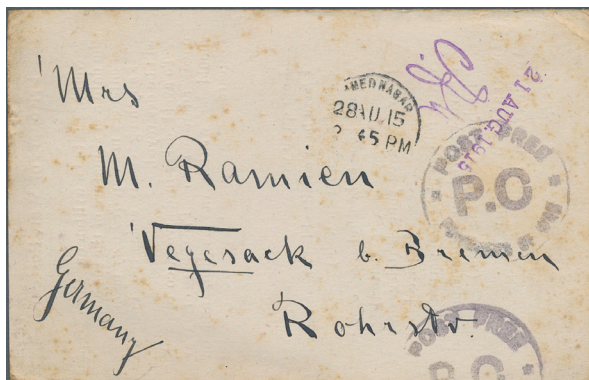 Mrs
M. Ramien
Vegesack b. Bremen
Rohrstr.
Germany
MEDNAGAR
28 AU. 15
45 PM
21 AUG. 1915
POST FREE
P.C
POST FREE
P.C.